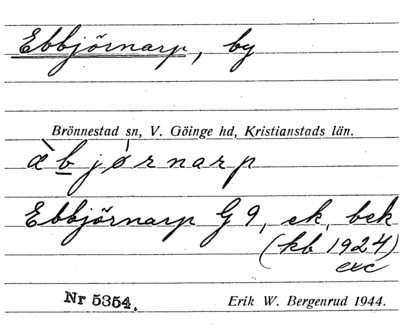 Ebbjörnarp, by
Brönnestad sn, V. Göinge hd, Kristianstads län.
æ̀bjǿrnarp
Ebbjörnarp G 9, ek, bek
(kb 1924)
exc
Nr 5354. Erik W. Bergenrud 1944.